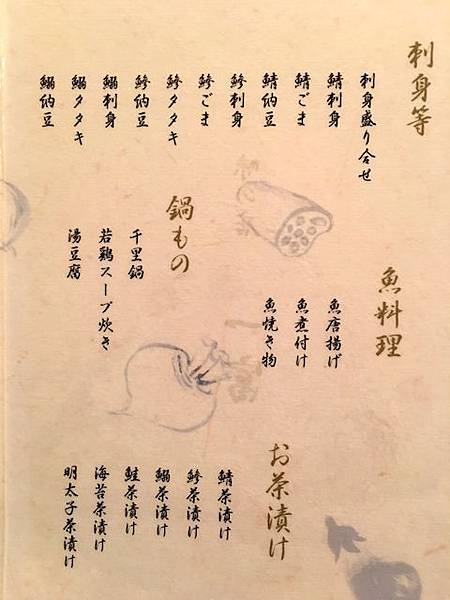 刺身等
刺身盛り合せ
鯖刺身
鯖ごま
鯖納豆
鯵刺身
鯵ごま
鯵タタキ
鯵納豆
鰯刺身
鰯タタキ
鰯納豆
鍋もの
千里鍋
若鶏スープ炊き
湯豆腐
魚料理
魚唐揚げ
魚煮付け
魚焼き物
お茶漬け
鯖茶漬け
鯵茶漬け
鰯茶漬け
鮭茶漬け
海苔茶漬け
明太子茶漬け